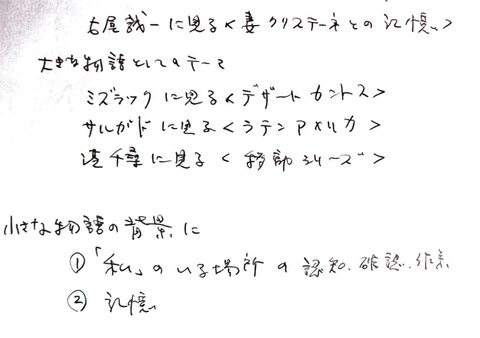 古屋誠一に見る<妻クリスティーネとの記憶>
大きな物語としてのテーマ
ミズラックに見る<デザートカントス>
サルガドに見る<ラテンアメリカ>
港千尋に見る<シリーズ>
小さな物語の背景に
①「私」のいる場所の認知、確認、作業
②記憶